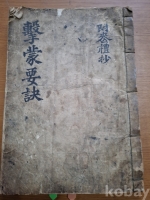 擊蒙要訣
喪祭禮抄
kobay